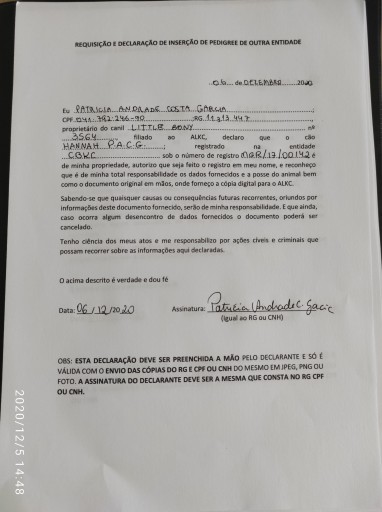 REQUISIÇÃO E DECLARAÇÃO DE INSERÇÃO DE PEDIGREE DE OUTRA ENTIDADE
de DEZEMBRO 2020
Eu PATRICIA ANDRADE COSTA GARCIA
CPF 041.782.246-90 RG 11.213.447
proprietário do canil LITTLE BONY nº
3564 filiado ao ALKC, declaro que o cão
HANNAH P.A.C.G. registrado na entidade
CBKC sob o número de registro MGR/17/00142 é
de minha propriedade, autorizo que seja feito o registro em meu nome, e reconheço
que é de minha total responsabilidade os dados fornecidos e a posse do animal bem
como o documento original em mãos, onde forneço a cópia digital para o ALKC.
Sabendo-se que quaisquer causas ou consequências futuras recorrentes, oriundos por
informações deste documento fornecido, serão de minha responsabilidade. E que ainda,
caso ocorra algum desencontro de dados fornecidos o documento poderá ser
cancelado.
Tenho ciência dos meus atos e me responsabilizo por ações cíveis e criminais que
possam recorrer sobre as informações aqui declaradas.
O acima descrito é verdade e dou fé
Data: 06/12/2020 Assinatura: Patricia Andrade C. Garcia
(Igual ao RG ou CNH)
OBS: ESTA DECLARAÇÃO DEVE SER PREENCHIDA A MÃO PELO DECLARANTE E SÓ É
VÁLIDA COM O ENVIO DAS CÓPIAS DO RG E CPF OU CNH DO MESMO EM JPEG, PNG OU
FOTO. A ASSINATURA DO DECLARANTE DEVE SER A MESMA QUE CONSTA NO RG CPF
OU CNH.
2020/12/5 14:48